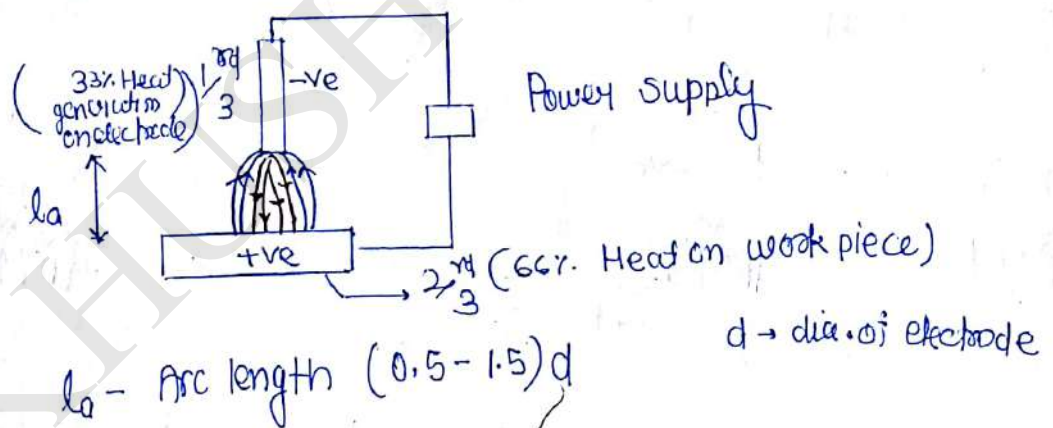 (33% Heat generation on electrode) 1/3 rd
-ve
Power supply
la
+ve
2/3 rd (66% Heat on work piece)
d → dia. of electrode
la - Arc length (0.5 - 1.5) d